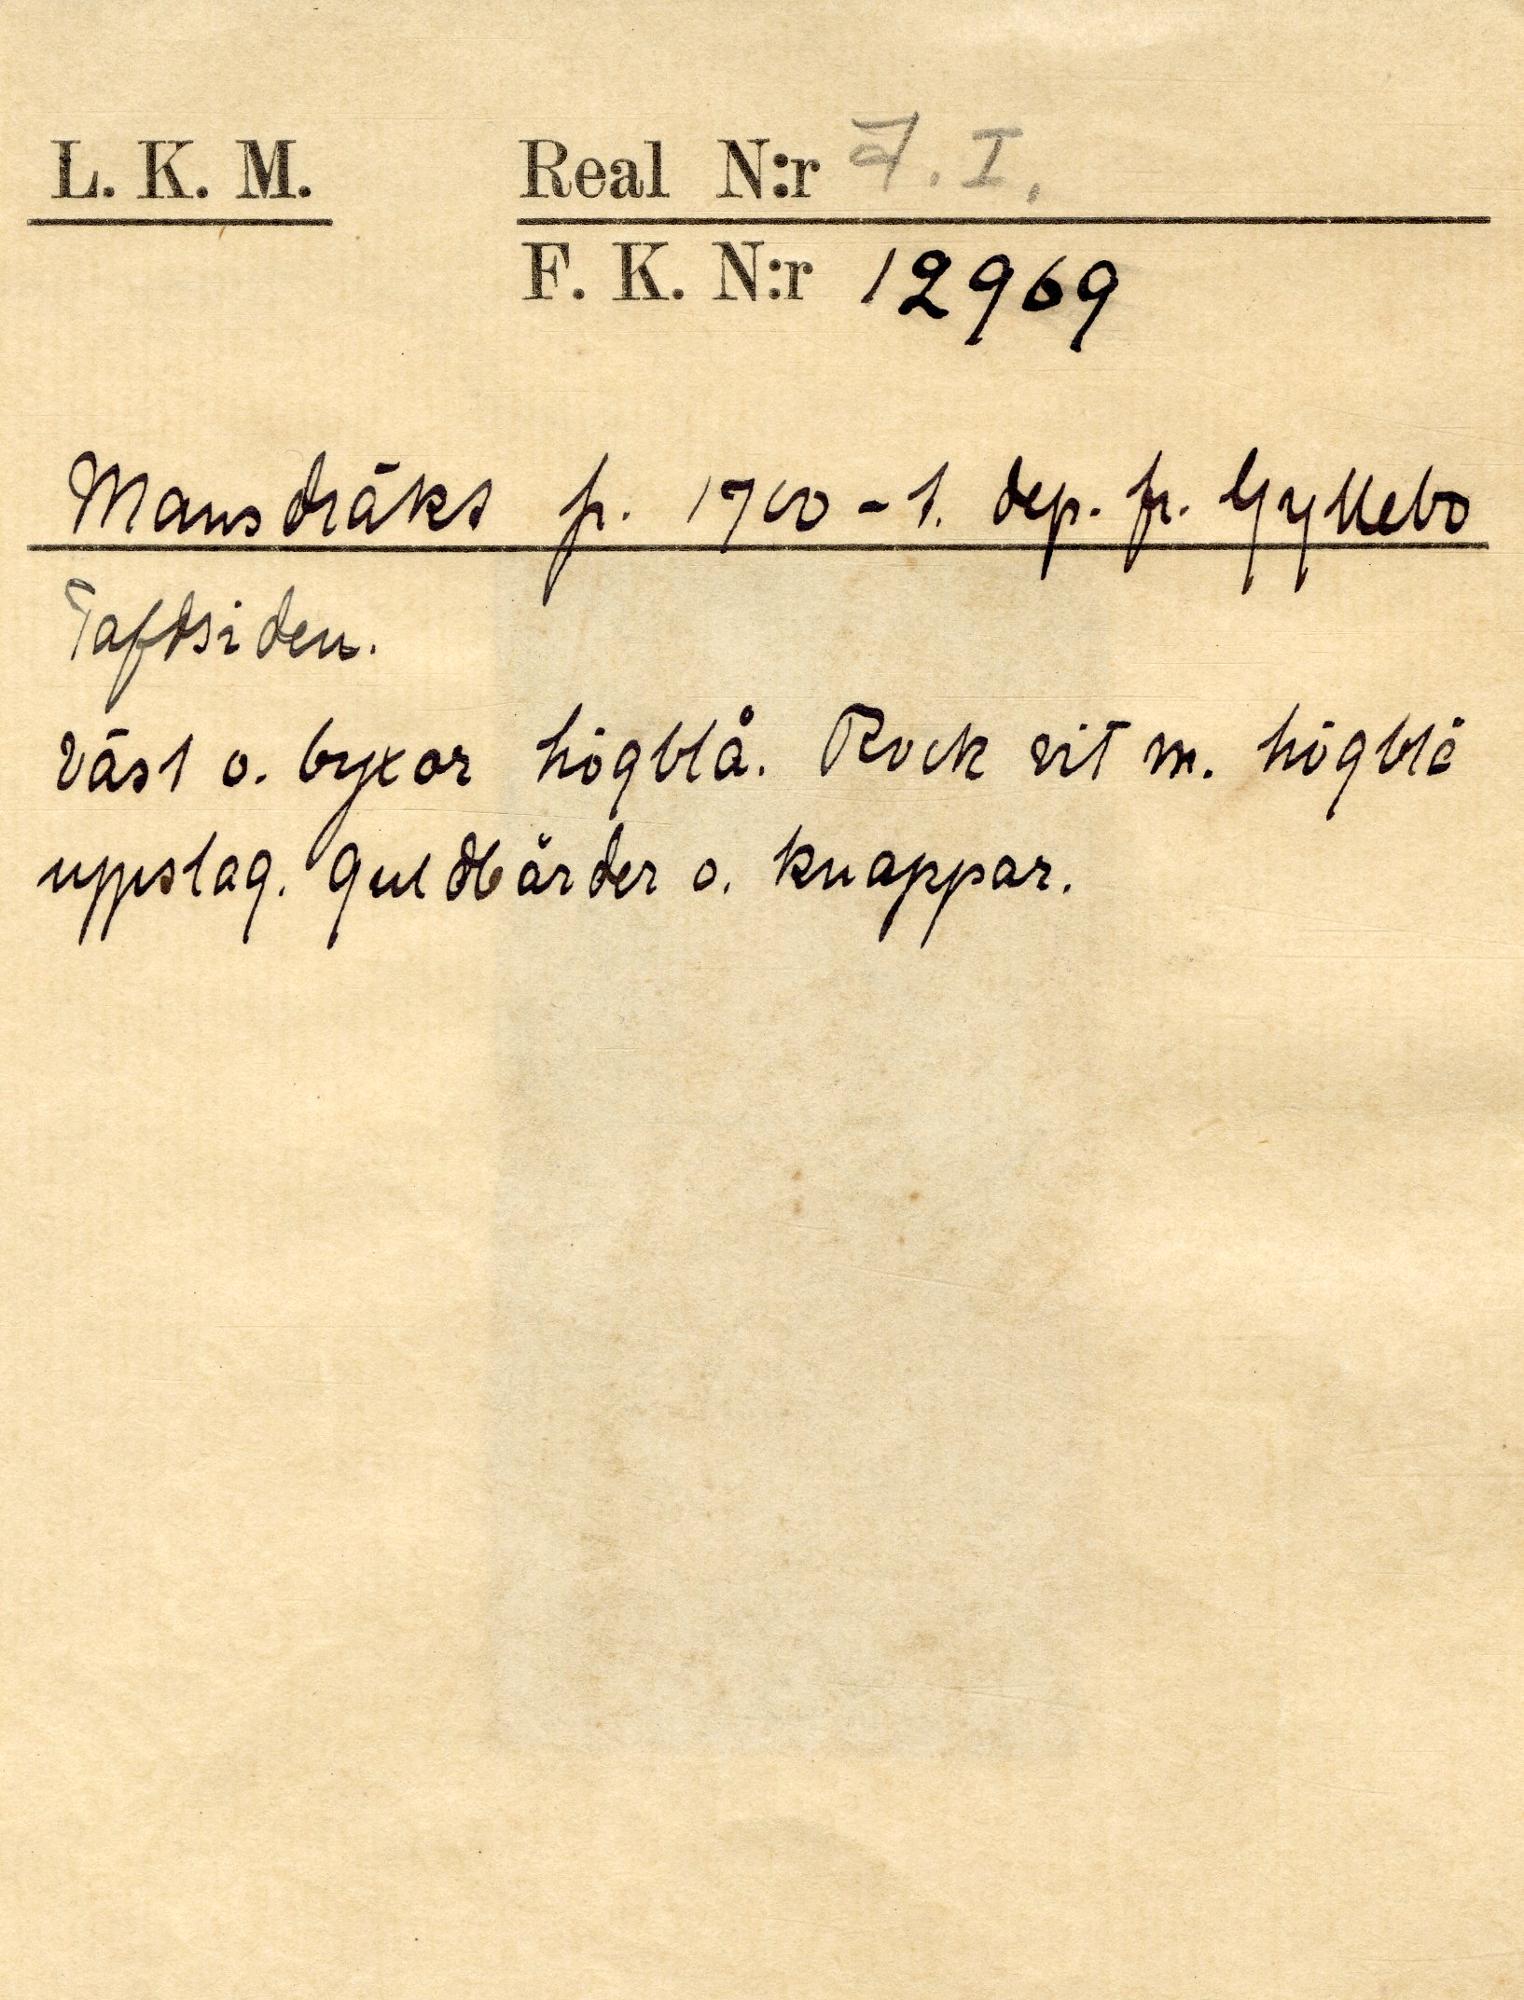 L. K. M. Real N:r F. I.
F. K. N:r 12969
Mansdräkt fr. 1700-t. dep. fr. Gyllebo
Taftsiden.
Väst o. byxor högblå. Rock vit m. högblå
uppslag. Guldbårder o. knappar.